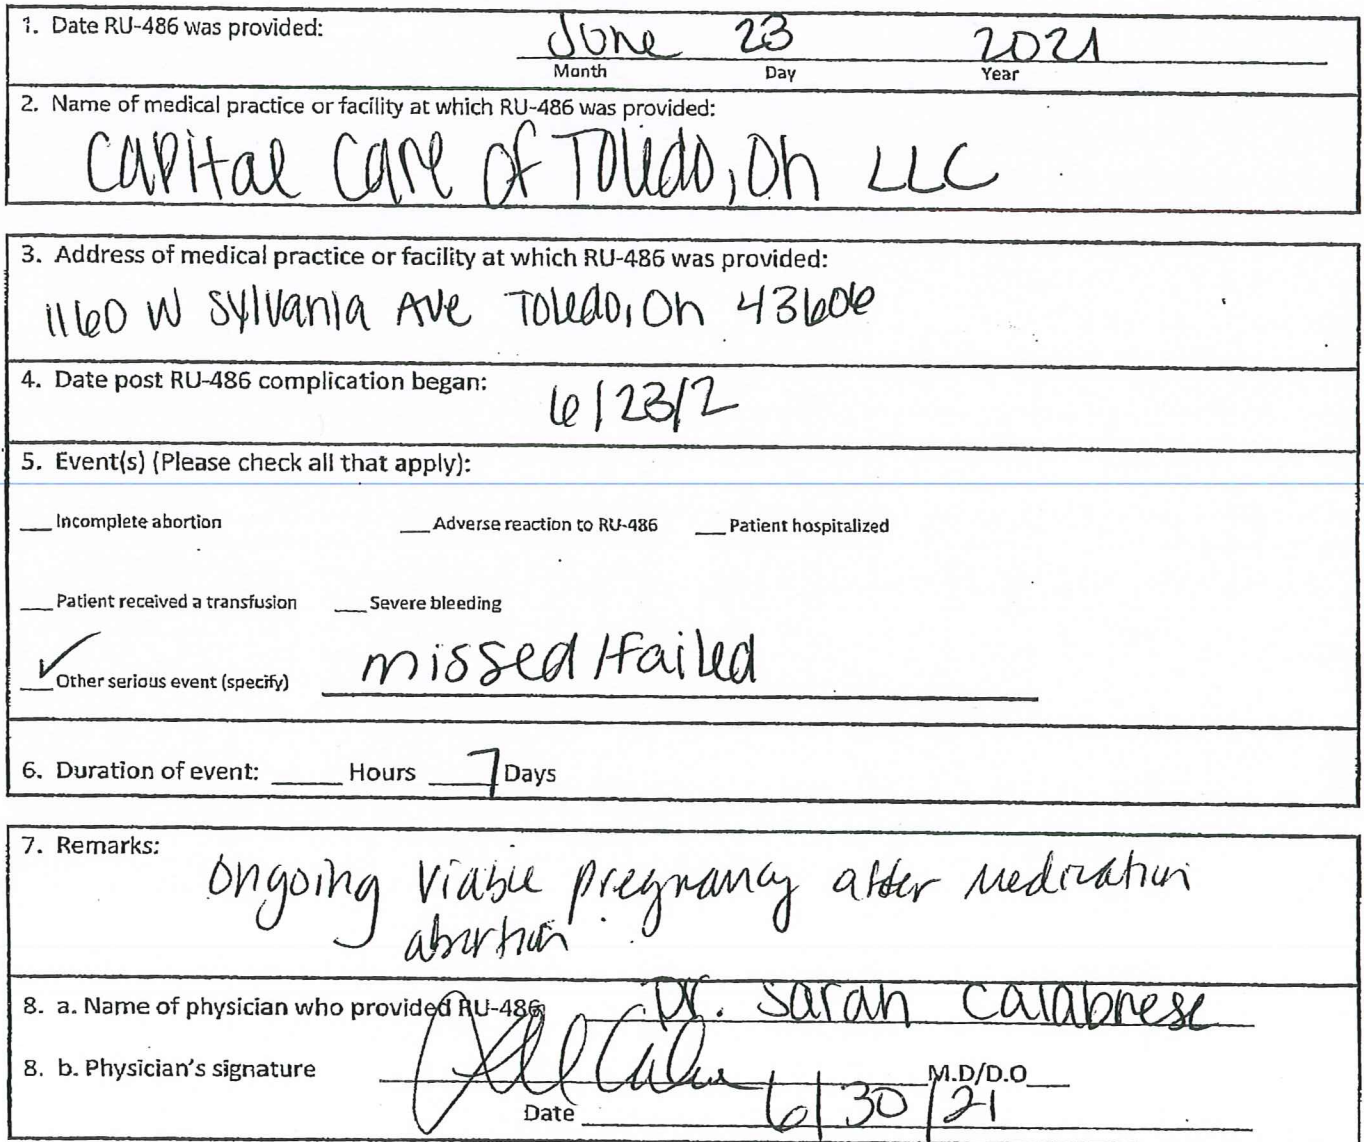 1. Date RU-486 was provided: June 23 2021
Month Day Year
2. Name of medical practice or facility at which RU-486 was provided:
Capital Care of Toledo, Oh LLC
3. Address of medical practice or facility at which RU-486 was provided:
1160 W Sylvania Ave Toledo, Oh 43606
4. Date post RU-486 complication began: 6/23/2
5. Event(s) (Please check all that apply):
___ Incomplete abortion ___ Adverse reaction to RU-486 ___ Patient hospitalized
___ Patient received a transfusion ___ Severe bleeding
✓ Other serious event (specify) missed/failed
6. Duration of event: ____ Hours 7 Days
7. Remarks:
Ongoing viable pregnancy after medication
abortion
8. a. Name of physician who provided RU-486 Dr. Sarah Calabrese
8. b. Physician's signature M.D/D.O___
Date 6/30/21